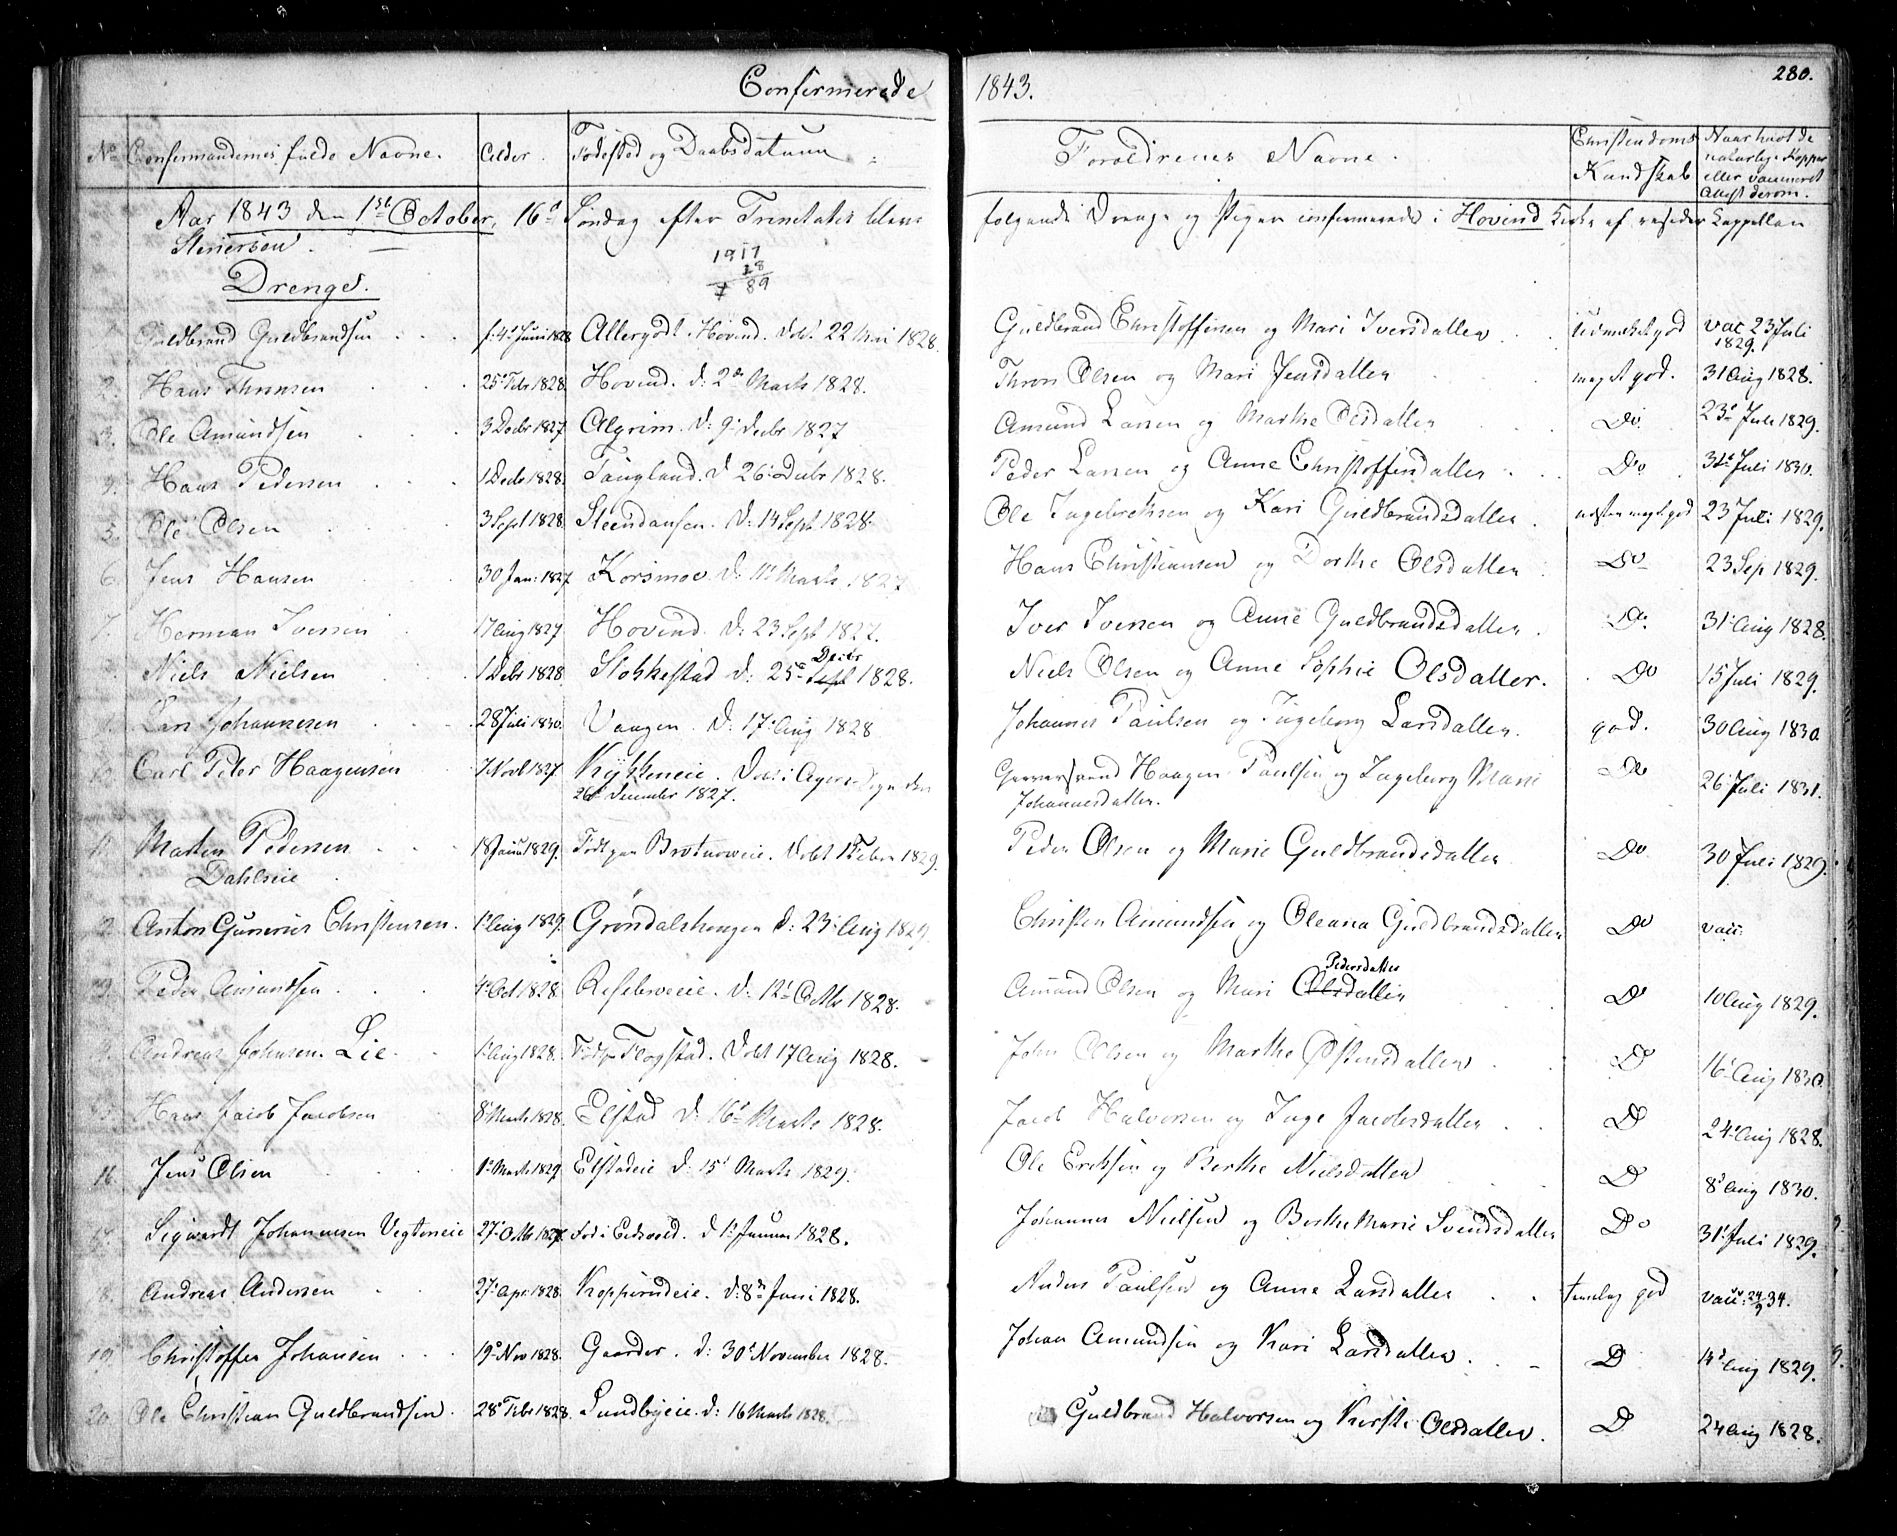 Confirmerede 1843. 280.
No Confirmandernes fulde Navne. Alder. Fødested og Daabsdatum Forældrenes Navne. Christendoms Kundskab Naar havt de naturlige Kopper eller vaccineret Attest derom.
Aar 1843 den 1ste October, 16d Søndag efter Trinitatis bleve følgende Drenge og Piger confirmerede i Hovind Kirke af resider Cappellan
Stenersen.
1917
28
89
Drenge.
Guldbrand Guldbrandsen f. 4d Juni 1828 Allergodt. Hovind. Døbt 22 1828. Guldbrand Christoffersen og Mari Iversdatter Udmærket god vac 23 Juli 1829.
2. Hans Thronsen 25d Febr 1828 Hovind. d: 2den Marts 1828. Thron Olsen og Mari Jensdatter meget god. 31 Aug 1828.
3. Ole Amundsen 3 Decbr 1827 Algrim. d: 9d Decbr 1827 Amund Larsen og Marthe Olsdatter Do 23d Juli 1829.
4. Hans Pedersen 1 Decbr 1828. d 26d Decbr 1828. Peder Larsen og Anne Christoffersdatter Do 31d Juli 1830.
5. Ole Olsen 3 Sept 1828. d: 14 Sept 1828. Ole Ingebretsen og Kari Guldbrandsdatter næsten meget god 23 Juli 1829.
6. Jens Hansen 30 Jan: 1827 Korsmoe d: 11d Marts 1827 Hans Christiansen og Dorthe Olsdatter Do 23 Sep 1829.
7. Herman Iversen 17 Aug 1827 Hovind. d: 23 Sept 1827. Iver Iversen og Anne Guldbrandsdatter. Do 31d Aug 1828.
Niels Nielsen 1 Debr 1828 Slokkestad d: 25de Sept Decbr 1828. Niels Olsen og Anne Sophie Olsdatter. Do 15 Juli 1829.
Lars Johannesen 28 Juli 1830. Vaagen. d: 17d Aug 1828 Johannes Paulsen og Ingeborg Larsdatter. god. 30 Aug 1830
10 Carl Peter Haagensen 7 Novb 1827. Døbt i Agers Sogn den Haagen Paulsen og Ingeborg Marie Do 26d Juli 1831.
26d December 1827. Johannesdatter.
11. Morten Pedersen 18 Januar 1829. Født paa Døbt 1 Febr 1829. Peder Olsen og Marie Guldbrandsdatter Do 30 Juli 1829.
Dahlseie
12 Anton Gunerius Christensen. 1d Aug 1829. Grøndalshengen d: 23d Aug 1829 Christen Amundsen og Oleana Guldbrandsdatter Do vacc:
Peder Amundsen 4d Oct 1828 d: 12d Octbr 1828. Amund Olsen og Mari Olsdatter Pedersdatter Do 10 Aug 1829.
Andreas Johnsen Lie 1d Aug 1828. Flogstad. Døbt 17 Aug 1828. John Olsen og Marthe Østensdatter Do 16d Aug 1830
Hans Jacob Jacobsen 8d Marts 1828. Elstad d: 16d Marts 1828. Jacob Halvorsen og Inge Jacobsdatter Do 24d Aug 1828.
16. Jens Olsen 1d Marts 1829 Elstadeie d: 15d Marts 1829. Ole Eriksen og Berthe Nielsdatter Do 8d Aug 1830.
Sigvardt Johannesen 27d Octbr 1827. Fød i Eidsvold. d 1d Januar 1828. Johannes Nielsen og Berthe Marie Svendsdatter Do 31d Juli 1829.
18. Andreas Andersen 27d Apr: 1828 Kopperudeie. d: 8d Juni 1828. Anders Paulsen og Anne Larsdatter temelig god vacc: 24/9 34.
19. Christoffer Johansen 19d Nov 1828. Gaarder. d: 30d November 1828. Johan Amundsen og Kari Larsdatter. D 14d Aug 1829.
20. Ole Christian Guldbrandsen. 28d Febr 1828. Sundbyeie. d: 16 Marts 1828. Guldbrand Halvorsen og Kirsti Olsdatter. D 24 Aug 1828.